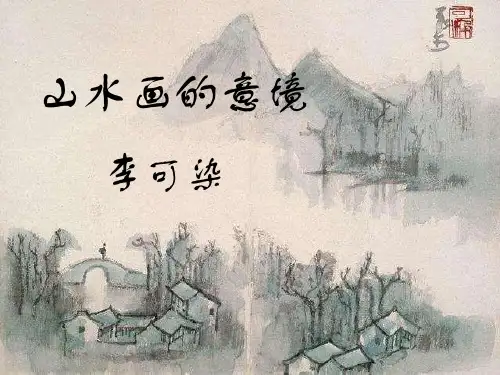 山水画的意境
李可染